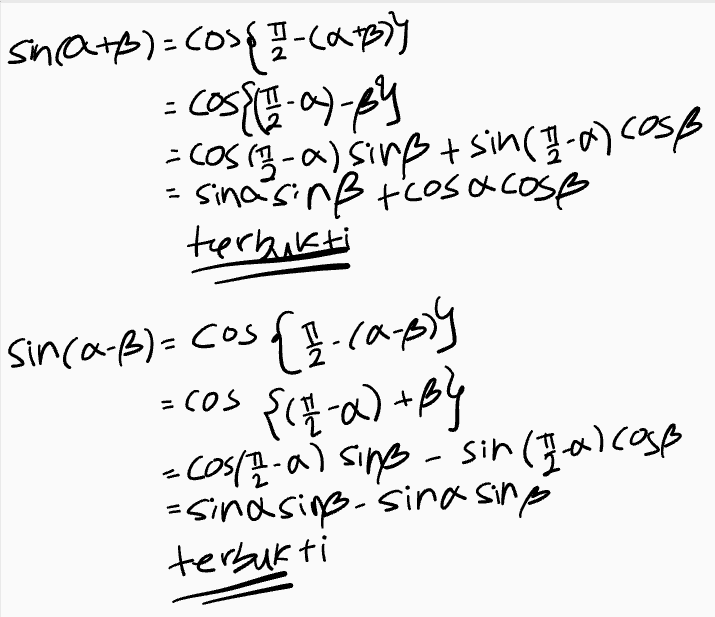 sin(α+β)=cos{π/2-(α+β)}
=cos{(π/2-α)-β}
=cos(π/2-α)sinβ+sin(π/2-α)cosβ
=sinαsinβ+cosαcosβ
terbukti
sin(α-β)=cos{π/2-(α-β)}
=cos{(π/2-α)+β}
=cos(π/2-α)sinβ-sin(π/2-α)cosβ
=sinαsinβ-sinαsinβ
terbukti